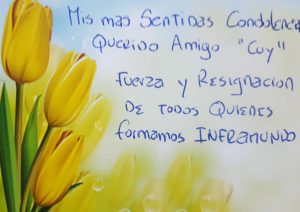 Mis mas Sentidas Condolencias
Querido Amigo "Cuy"
Fuerza y Resignacion
De todos quienes
formamos INFRAMUNDO